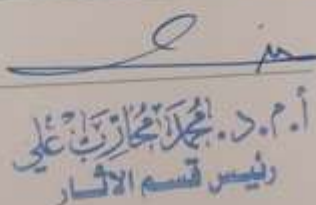 أ.م.د. محمد محارب علي
رئيس قسم الاثار